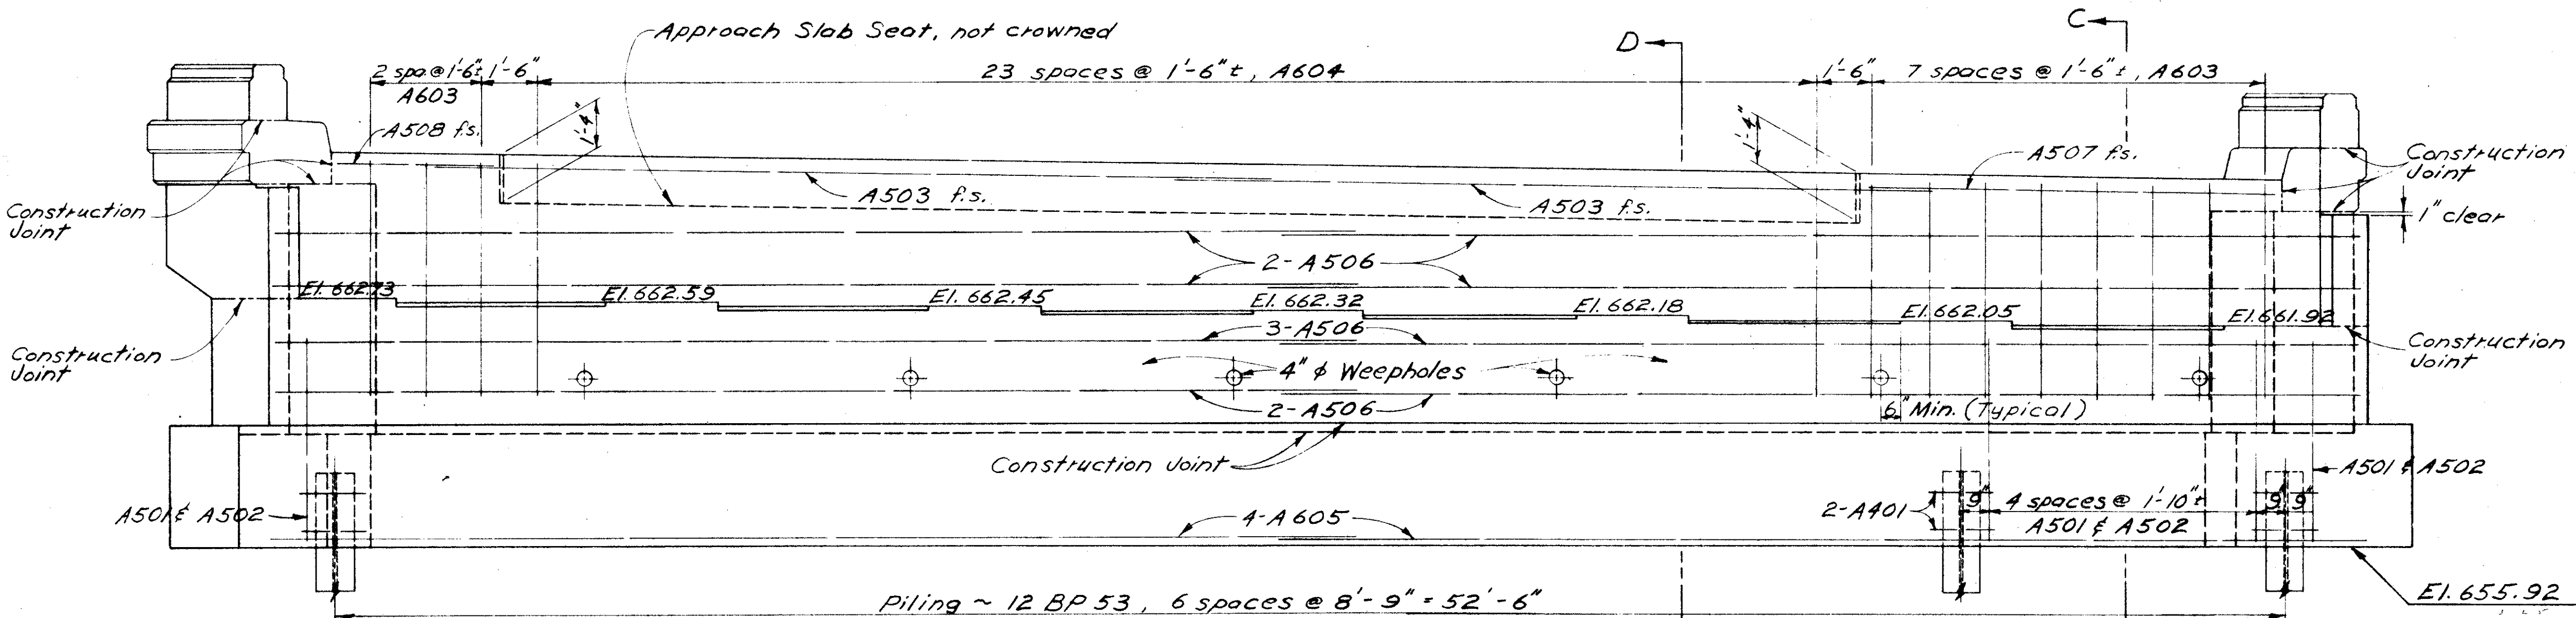 C
Approach Slab Seat, not crowned
D
2 spa@1'-6"± 1'-6"
23 spaces @ 1'-6"±, A604
1'-6"
7 spaces @ 1'-6"±, A603
A603
A508 f.s.
1'-4"
1'-4"
A507 f.s.
Construction Joint
A503 f.s.
A503 f.s.
Construction Joint
1" clear
2-A506
El. 662.73
El. 662.59
El. 662.45
El. 662.32
El. 662.18
El. 662.05
El. 661.92
3-A506
Construction Joint
4" φ Weepholes
Construction Joint
2-A506
6" Min. (Typical)
Construction Joint
A501 & A502
A501 & A502
4-A605
2-A401
9"
4 spaces @ 1'-10"±
A501 & A502
9"
9"
Piling ~ 12 BP 53, 6 spaces @ 8'-9" = 52'-6"
El. 655.92